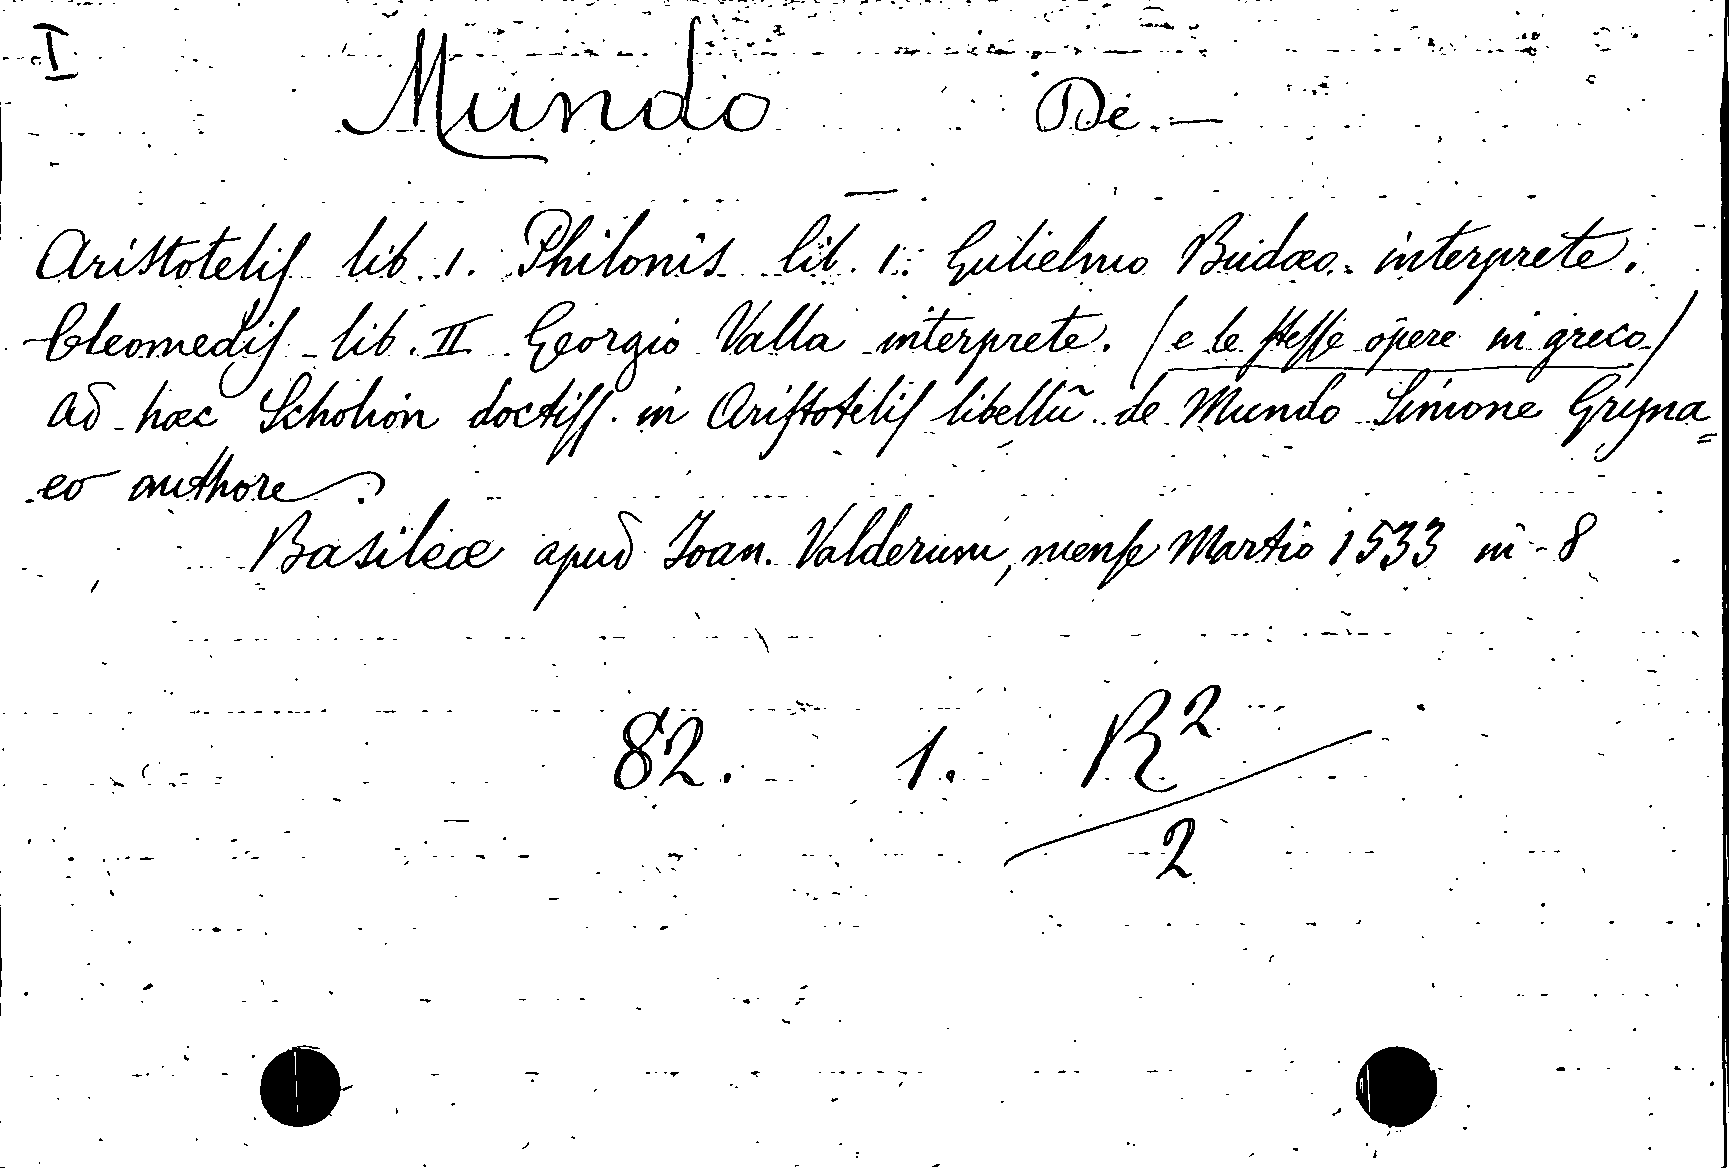 I
Mundo De —
Aristotelis lib. 1. Philonis lib. 1. Gulielmo Budæo interprete.
Cleomedis lib. II Georgio Valla interprete. (e le stesse opere in greco)
Ad hæc Scholion doctiss. in Aristotelis libellũ de Mundo Simone Gryna=
eo authore.
Basileæ apud Ioan. Valderum, mense Martio 1533 in-8
82. 1. R2
2